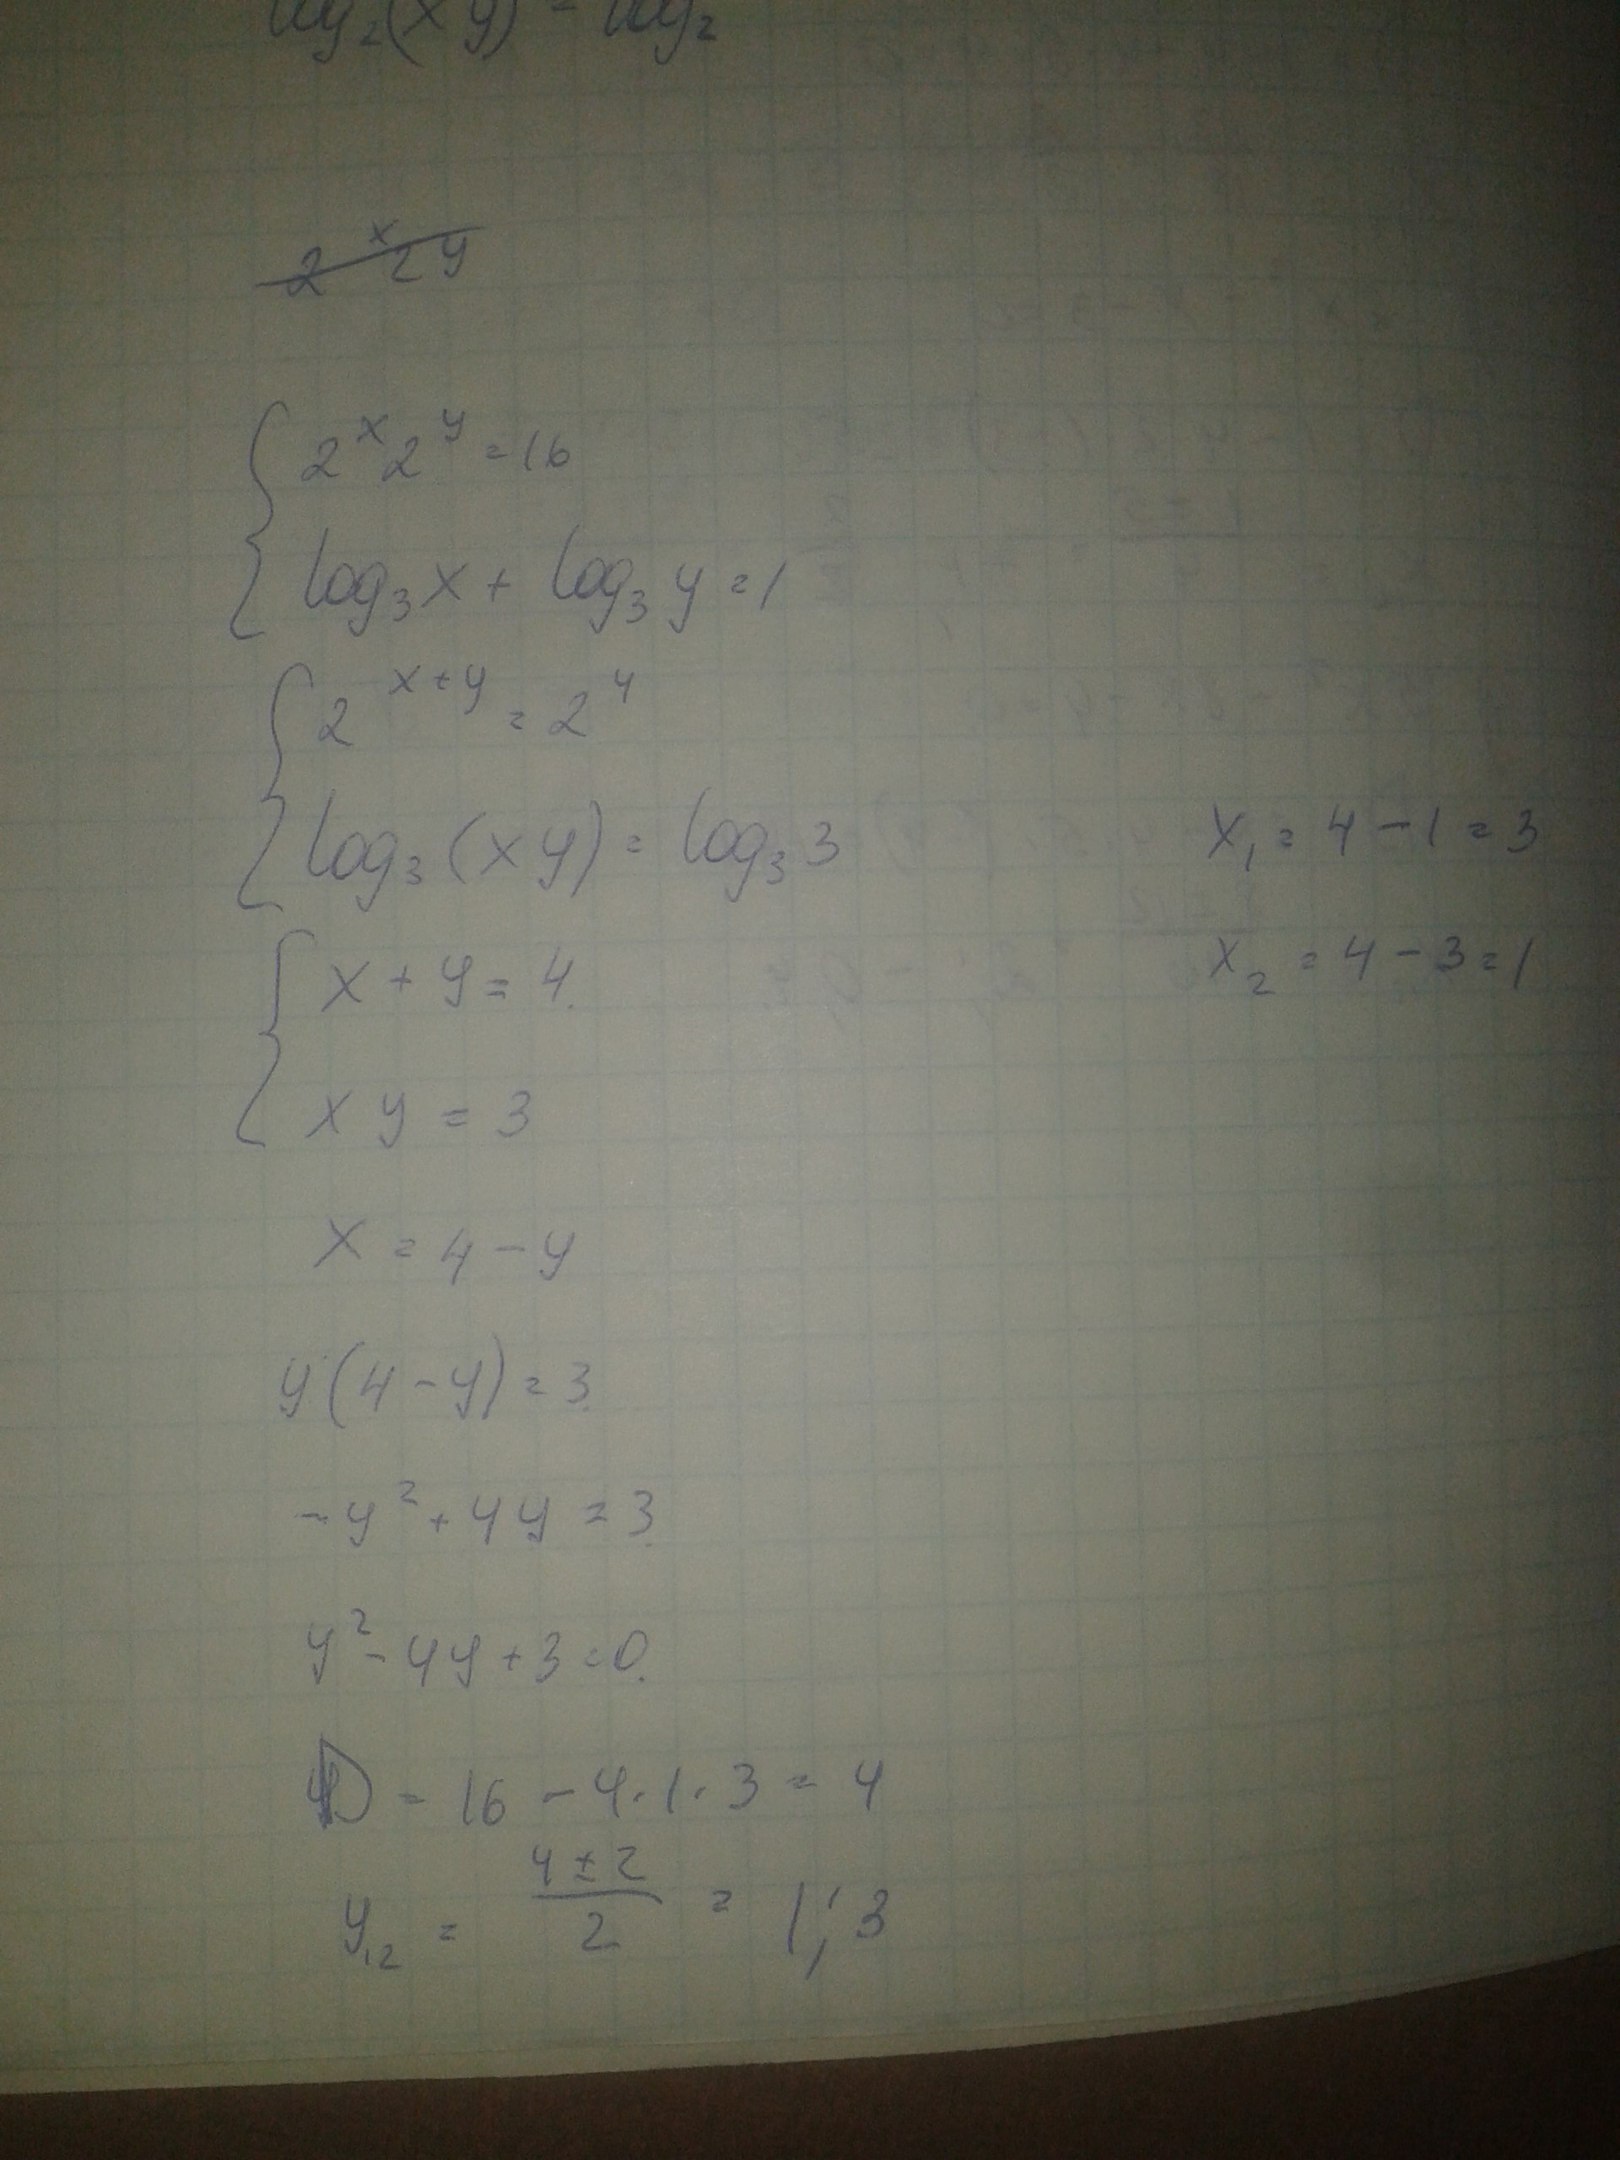 log₂(xy) = log₂
2ˣ2ʸ
2ˣ2ʸ=16
log₃x + log₃y=1
2ˣ⁺ʸ = 2⁴
log₃(xy) = log₃3
x + y = 4
xy = 3
x = 4 - y
y(4-y) = 3
-y² + 4y = 3
y² - 4y + 3 = 0
D = 16 - 4·1·3 = 4
y₁₂ = (4 ± 2)/2 = 1; 3
x₁ = 4 - 1 = 3
x₂ = 4 - 3 = 1